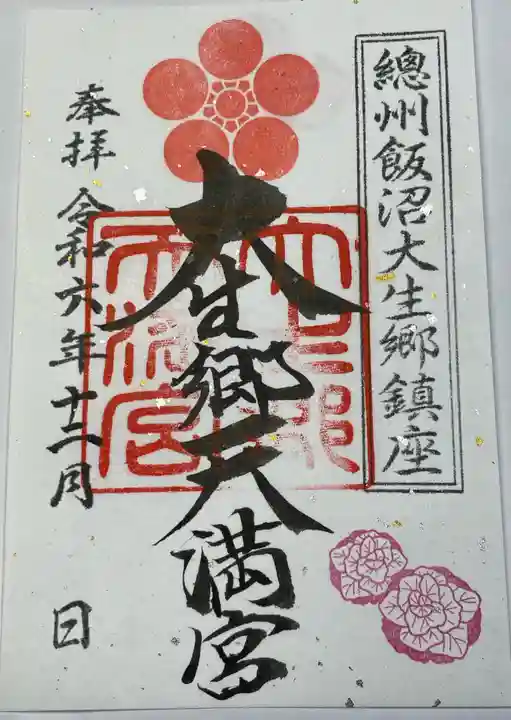 總州飯沼大生郷鎮座
大生郷天満宮
奉拝 令和六年十二月 日